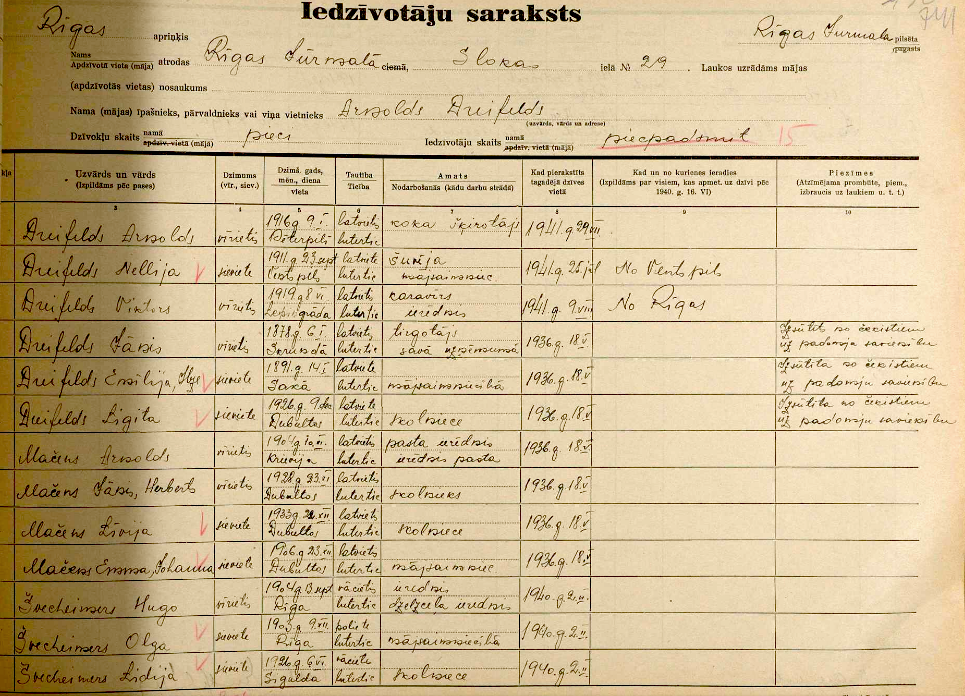 Iedzīvotāju saraksts
Rīgas apriņķis
Rīgas Jūrmala pilsēta
pagasts
Nams
Apdzīvotā vieta (māja) atrodas Rīgas Jūrmalā ciemā, Slokas ielā № 29. Laukos uzrādāms mājas
(apdzīvotās vietas) nosaukums
Nama (mājas) īpašnieks, pārvaldnieks vai viņa vietnieks Arnolds Dreifelds
(uzvārds, vārds un adrese)
Dzīvokļu skaits namā apdzīv. vietā (māja) pieci Iedzīvotāju skaits namā apdzīv. vietā (mājā) piecpadsmit 15
Uzvārds un vārds (Izpildāms pēc pases) Dzimums (vīr., siev.) Dzimš. gads, mēn., diena vieta Tautība Ticība Amats Nodarbošanās (kādu darbu strādā) Kad pierakstīts tagadējā dzīves vietā Kad un no kurienes ieradies (Izpildāms par visiem, kas apmet. uz dzīvi pēc 1940. g. 16. VI) Piezīmes (Atzīmējama prombūte, piem., izbraucis uz laukiem u. t. t.)
3 4 5 6 7 8 9 10
Dreifelds Arnolds vīrietis 1916.g. 9.I latvietis lutertic koka šķirotājs 1941.g. 29.VII
Dreifelds Nellija sieviete 1911.g. 23.sept Ventspils latviete lutertic šuvēja mājsaimniec 1941.g. 25.jūl No Ventspils
Dreifelds Viktors vīrietis 1919.g. 8.VI latvietis lutertic karavīrs ierēdnis 1941.g. 9.VIII No Rīgas
Dreifelds Jānis vīrietis 1878.g. 6.I latvietis lutertic tirgotājs savā uzņēmumā 1936.g. 18.V Izsūtīts no čekistiem uz padomju savienību
Dreifelds Emīlija, Ilze sieviete 1891.g. 14.I latviete lutertic mājsaimniecībā 1936.g. 18.V Izsūtīta no čekistiem uz padomju savienību
Dreifelds Ligita sieviete 1926.g. 9.dec Dubultos latviete lutertic skolniece 1936.g. 18.V Izsūtīta no čekistiem uz padomju savienību
Mačēns Arnolds vīrietis Krievija latvietis lutertic pasta ierēdnis ierēdnis pasta 1936.g. 18.V
Mačens Jānis, Herberts vīrietis 1928.g. 23.VI Dubultos latvietis lutertic skolnieks 1936.g. 18.V
Mačens Līvija sieviete 1933.g. 22.XII Dubultos latvietis lutertic skolniece 1936.g. 18.V
Mačens Emma, Johanna sieviete 1906.g. 23.III Dubultos latvietis lutertic mājsaimniec 1936.g. 18.V
Švecheimers Hugo vīrietis 1904.g. 3.sept Rīga vācietis lutertic ierēdnis dzelzceļa ierēdnis 1940.g. 2.II
Švecheimers Olga sieviete Rīga poliete lutertic mājsaimniecībā 1940.g. 2.II
Švecheimers Lidija sieviete 1926.g. 6.VI Sigulda vāciete lutertic skolniece 1940.g. 2.II